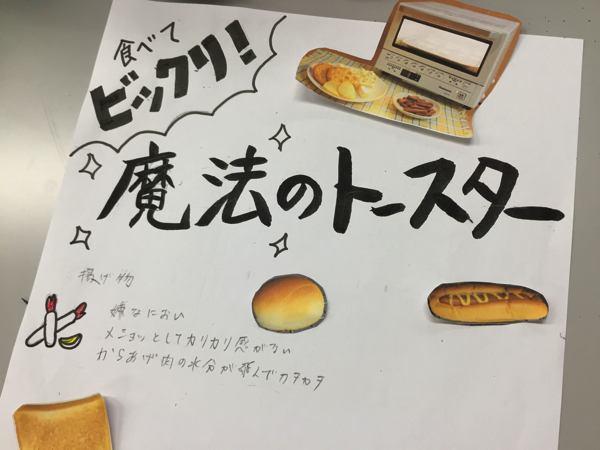 食べて
ビックリ!
魔法のトースター
揚げ物
嫌なにおい
メショッとしてカリカリ感がない
からあげ肉の水分が飛んでカタカタ